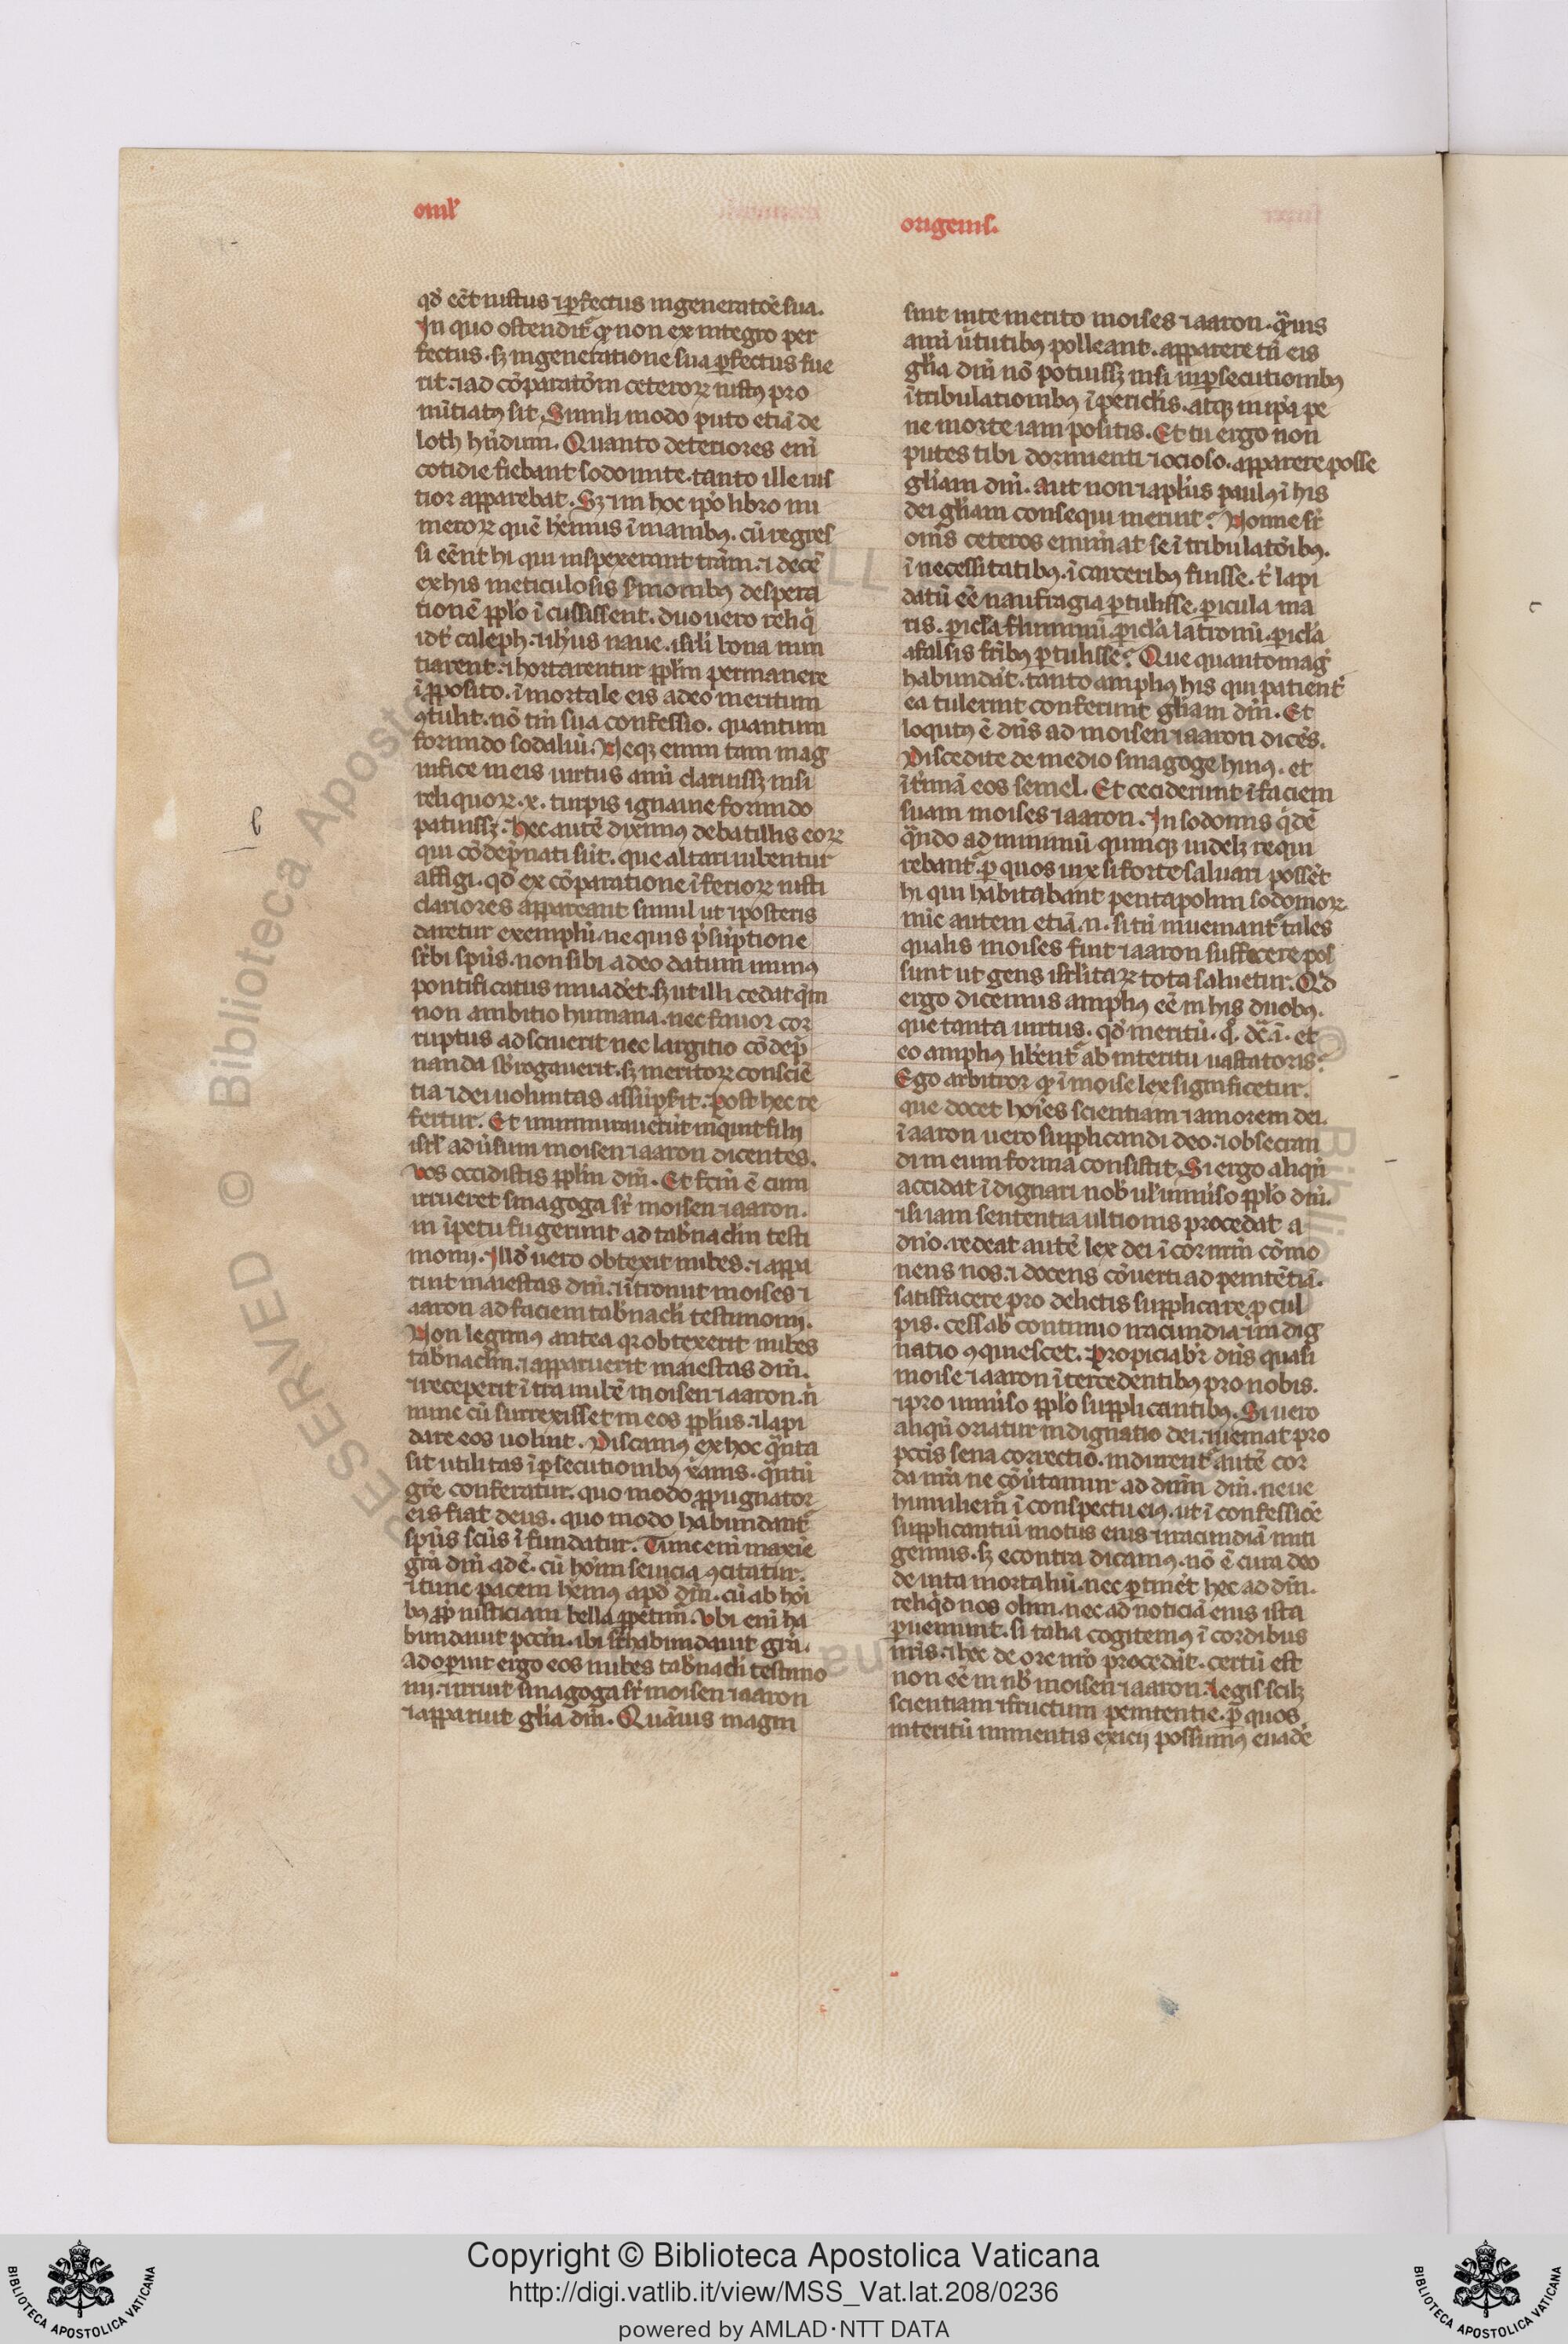 omĺ
origenis.
qd̕ eēt iustus ⁊ ꝑfectus in generatōe sua.
In quo ostendit̕ ꝙ non ex integro per
fectus. sꝫ in generatione sua ꝑfectus fue
rit. ⁊ ad cōparatōm ceteroꝝ iustꝰ pro
nūtiatꝰ sit. Simili modo puto etiā de
loth hn̄dum. Quanto deteriores enī
cotidie fiebant sodomite. tanto ille ius
tior apparebat. Sꝫ ⁊ in hoc ip̄o libro nu
meroꝝ quē hēmus ī manibꝰ. cū regres
si eēnt hi qui inspexerant trām. ⁊ decē
ex his meticulosis s̄monibꝰ despera
tionē ppl̄o īcussissent. duo uero reliq̄
idē caleph. ⁊ ih̄us naue. isrl̄i bona nun
tiarent. ⁊ hortarentur ppl̄m permanere
ī ꝓposito. īmortale eis adeo meritum
ꝯtulit. nō tm̄ sua confessio. quantum
formido sodaliū. Neqꝫ enim tam mag
nifice in eis uirtus animi claruissꝫ nisi
reliquoꝝ .x. turpis ignauie formido
patuissꝫ. Hec autē diximꝰ de batillis eoꝝ
qui cōdēpnati sūt. que altari iubentur
affigi. qd̕ ex cōparatione īferioꝝ iusti
clariores appareant simul ut ⁊ posteris
daretur exemplū. ne quis p̄sūptione
sr̄bi spūs. non sibi a deo datum munꝰ
pontificatus inuadēt. sꝫ ut illi cedat q̄m
non ambitio humana. nec fauor cor
ruptus adsciuerit nec largitio cōdēp
nanda sb̄rogauerit. sꝫ meritoꝝ consciē
tia ⁊ dei uoluntas assūpsit. Post hec re
fertur. Et murmurauerūt inquit filii
isrl̄ aduersum moisen ⁊ aaron dicentes.
Vos occidistis ppl̄m dn̄i. Et fcm̄ ē cum
irrueret sinagoga sr̄ moisen ⁊ aaron.
in īpetu fugerunt ad tab̄nacl̄m testi
monij. Illd̕ uero obtexit nubes. ⁊ appa
ruit maiestas dn̄i. ⁊ ītroiuit moises ⁊
aaron ad faciem tab̄nacl̄i testimonij.
Non legimꝰ antea qꝛ obtexerit nubes
tab̄nacl̄m. ⁊ apparuerit maiestas dn̄i.
⁊ receperit ītra nubē moisen ⁊ aaron. n̄
nunc cū surrexisset in eos ppl̄us. ⁊ lapi
dare eos uolunt. Discamꝰ ex hoc q̄nta
sit utilitas ī ꝑsecutionibꝰ xānis. q̄ntū
grē conferatur. quo modo ꝓpugnator
eis fiat deus. quo modo habundant̕
spūs scūs īfundatur. Tunc enī maxīe
grā dn̄i adē. cū hoīm seuicia ꝯcitatur.
⁊ tunc pacem hēmꝰ apd̕ dm̄. cū ab hoī
bꝰ ꝓp̄ iusticiam bella ꝑpetim̄. Vbi enī ha
bundauit pccm̄. ibi sr̄habundauit grā.
Adoperuit ergo eos nubes tab̄nacl̄i testimo
nij. ⁊ irruit sinagoga sr̄ moisen ⁊ aaron
⁊ apparuit gl̄ia dn̄i. Quāuis magni
sint uite merito moises ⁊ aaron. q̄uis
animi ūtutibꝰ polleant. apparere tn̄ eis
gl̄ia dn̄i nō potuissꝫ nisi in ꝑsecutionibꝰ
ī tribulationibꝰ ī pericl̄is. atqꝫ in ip̄a pe
ne morte iam positis. Et tu ergo non
putes tibi dormienti ⁊ ocioso. apparere posse
gl̄iam dn̄i. Aut non ⁊ apl̄us paulꝰ ī his
dei gl̄iam consequi meruit? Nonne sr̄
om̄s ceteros enumerat se ī tribulatōibꝰ.
ī necessitatibꝰ. ī carceribꝰ fuisse. t̄ lapi
datū eē naufragia ꝑtulisse. ꝑicula ma
ris. ꝑicl̄a fluminū. ꝑicl̄a latronū. ꝑicl̄a
a falsis frībꝰ ꝑtulisse? Que quanto mag̕
habundāt. tanto ampliꝰ his qui patient̕
ea tulerint conferunt gl̄iam dn̄i. Et
loqutꝰ ē dn̄s ad moisen ⁊ aaron dicēs.
Discedite de medio sinagoge huiꝰ. et
ītimā eos semel. Et ceciderunt ī faciem
suam moises ⁊ aaron. In sodomis q̄dē
q̄ndo ad minimū quinqꝫ uidelꝫ requi
rebant̕. ꝑ quos uix si forte saluari possēt
hi qui habitabant pentapolim sodomoꝝ
nūc autem etiā .n. si tū inuemant̕ tales
qualis moises fuit ⁊ aaron sufficere pos
sunt ut gens isrl̄itaꝝ tota saluetur. Qd̕
ergo dicemus ampliꝰ eē in his duobꝰ.
que tanta uirtus. qd̕ meritū. et
eo ampliꝰ liberent̕ ab interitu uastatoris?
Ego arbitror ꝙ ī moise lex significetur.
que docet hoīes scientiam ⁊ amorem dei.
ī aaron uero supplicandi deo. ⁊ obsecran
di in eum forma consistit. Si ergo aliqn̄
accidat īdignari nob̄ ul̄ uniuīso ppl̄o dn̄m.
⁊ si iam sententia ultionis procedat a
dn̄o. redeat autē lex dei ī cor nrm̄ cōmo
nens nos. ⁊ docens cōuerti ad penitētiā.
satisfacere pro delictis supplicare ꝓ cul
pis. cessab̕ continuo iracundia. ⁊ indig
natio ꝯquiescet. Propiciab̕r dn̄s quasi
moise ⁊ aaron ītercedentibꝰ pro nobis.
⁊ pro uniuīso ppl̄o supplicantibꝰ. Si uero
aliqn̄ oriatur indignatio dei. ⁊ ueniat pro
pccīs seua correctio. indurent̕ autē cor
da nrā ne ꝯūtamur ad dnm̄ dm̄. neue
humiliem̄ ī conspectu eiꝰ. ut ī confessiōe
supplicantiū motus eius ⁊ iracundiā miti
gemus. sꝫ econtra dicamꝰ. nō ē cura deo
de uita mortaliū. nec ꝑtinēt hec ad dm̄.
reliqd̕ nos olim. nec ad noticiā eius ista
ꝑueniunt. si talia cogitemus ī cordibus
nrīs. ⁊ hec de ore nrō procedāt. certū est
non eē in nob̄ moisen ⁊ aaron. legis scilꝫ
scientiam ⁊ fructum penitentie. ꝑ quos
interitū iminentis exicij possumꝰ euadē
b
Copyright © Biblioteca Apostolica Vaticana
http://digi.vatlib.it/view/MSS_Vat.lat.208/0236
powered by AMLAD·NTT DATA
BIBLIOTECA APOSTOLICA VATICANA
BIBLIOTECA APOSTOLICA VATICANA